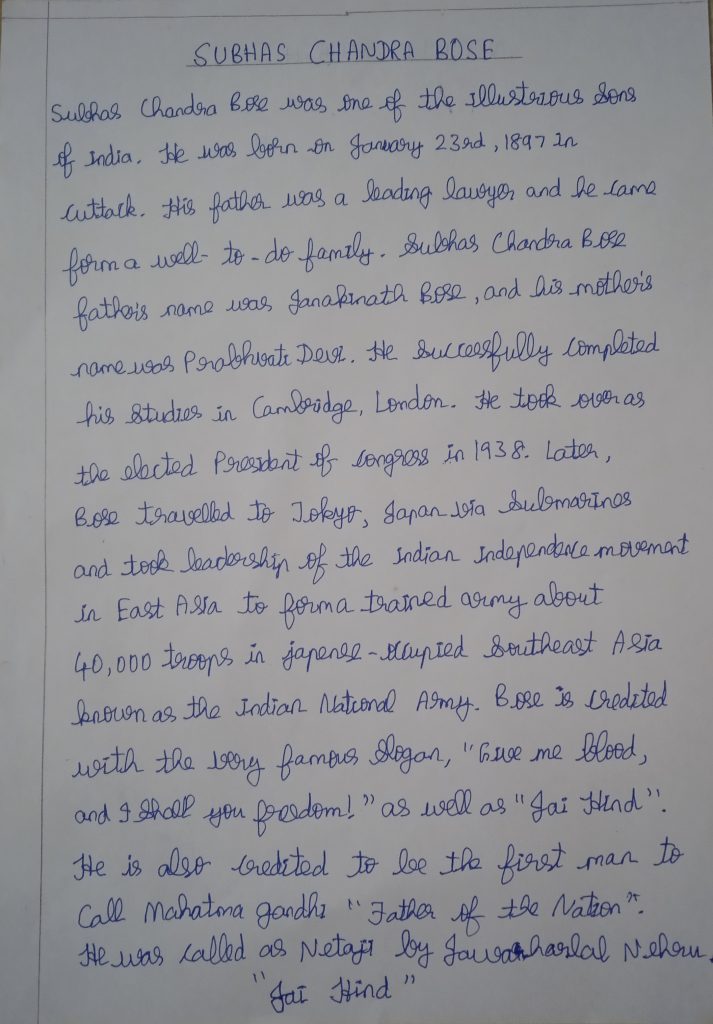 SUBHAS CHANDRA BOSE
Subhas Chandra Bose was one of the illustrious Sons
of India. He was born on January 23rd, 1897 in
Cuttack. His father was a leading lawyer and he came
form a well- to - do family. Subhas Chandra Bose
father's name was Janakinath Bose, and his mother's
name was Prabhvati Devi. He Successfully Completed
his Studies in Cambridge, London. He took over as
the elected President of congress in 1938. Later,
Bose travelled to Tokyo, Japan via Submarines
and took leadership of the Indian Independence movement
in East Asia to form a trained army about
40,000 troops in japense-occupied Southeast Asia
known as the Indian National Army. Bose is Credited
with the very famous Slogan, "Give me blood,
and I Shall you freedom!" as well as "Jai Hind".
He is also Credited to be the first man to
Call Mahatma gandhi "Father of the Nation".
He was called as Netaji by Jawaharlal Nehru.
"Jai Hind"